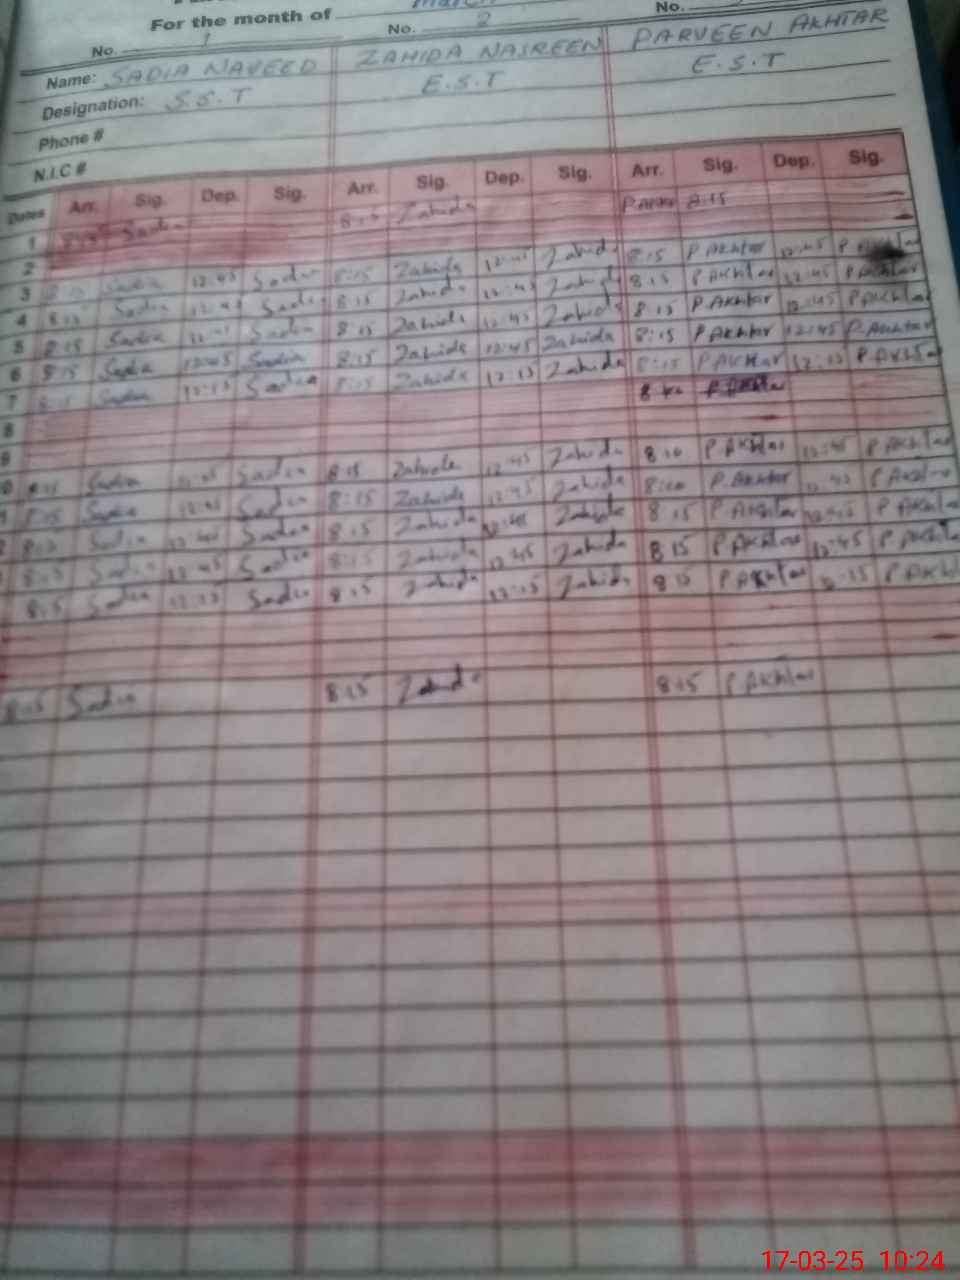 For the month of March
No. 1 No. 2 No.
Name: SADIA NAVEED ZAHIDA NASREEN PARVEEN AKHTAR
Designation: S.S.T E.S.T E.S.T
Phone #
N.I.C #
Dates Arr. Sig. Dep. Sig. Arr. Sig. Dep. Sig. Arr. Sig. Dep. Sig.
1 8:15 Sadia 8:15 Zahida 8:15
2
3 8:15 Sadia 12:45 Sadia 8:15 Zahida 12:45 Zahida 8:15 P Akhtar 12:45
4 8:15 Sadia 12:45 Sadia 8:15 Zahida 12:45 Zahida 8:15 P Akhtar 12:45 P Akhtar
5 8:15 Sadia Sadia 8:15 Zahida 12:45 Zahida 8:15 P Akhtar 12:45 P Akhtar
6 8:15 Sadia 12:45 Sadia 8:15 Zahida 12:45 Zahida 8:15 P Akhtar 12:45 P Akhtar
7 Sadia 12:15 Sadia 8:15 Zahida 12:15 Zahida 8:15 P Akhtar 12:15 P Akhtar
8 P Akhtar
9
8:15 Sadia 12:45 Sadia 8:15 Zahida 12:45 Zahida 8:10 P Akhtar 12:45 P Akhtar
8:15 Sadia 12:45 Sadia 8:15 Zahida 12:45 Zahida 8:10 P Akhtar 12:45 P Akhtar
8:15 Sadia 12:45 Sadia 8:15 Zahida 12:45 Zahida 8:15 P Akhtar 12:45 P Akhtar
8:15 Sadia 12:45 Sadia 8:15 Zahida 12:45 Zahida 8:15 P Akhtar 12:45 P Akhta
8:15 Sadia 12:15 Sadia 8:15 Zahida 12:15 Zahida 8:15 P Akhtar 12:15 P Akh
8:15 Sadia 8:15 Zahida 8:15 P Akhtar
17-03-25 10:24